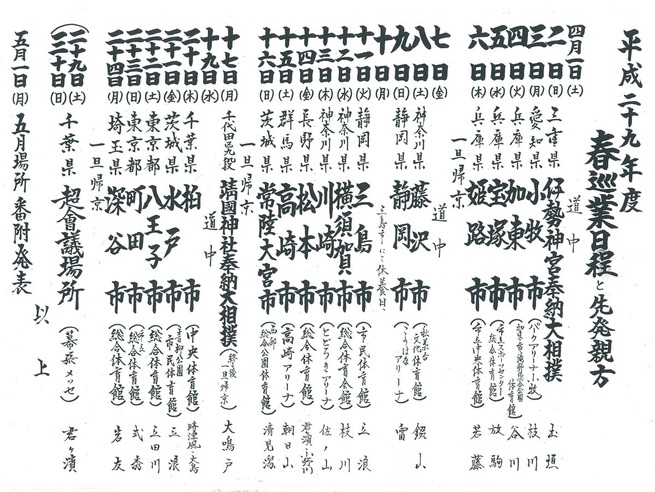 平成二十九年度
春巡業日程と先発親方
四月一日(土) 道中
二日(日) 三重県 伊勢神宮奉納大相撲 玉垣
三日(月) 愛知県 小牧市(パークアリーナ小牧) 枝川
四日(火) 兵庫県 加東市 谷川
五日(水) 兵庫県 宝塚市 放駒
六日(木) 兵庫県 姫路市(市立中央体育館) 若藤
一旦帰京
七日(金) 道中
八日(土) 神奈川県 藤沢市(秋葉台文化体育館)
九日(日) 静岡県 静岡市 雷
十日(月) 三島市にて休養日
十一日(火) 静岡県 三島市(市民体育館) 三浪
十二日(水) 神奈川県 横須賀市(総合体育会館) 枝川
十三日(木) 神奈川県 川崎市(とどろきアリーナ) 佐ノ山
十四日(金) 長野県 松本市(総合体育館)
十五日(土) 群馬県 高崎市(高崎アリーナ) 朝日山
十六日(日) 茨城県 常陸大宮市(西部総合公園体育館) 清見潟
一旦帰京
十七日(月) 千代田区九段 靖國神社奉納大相撲(終了後一旦帰京) 大鳴戸
十九日(水) 道中
二十日(木) 千葉県 柏市(中央体育館)
二十一日(金) 茨城県 水戸市(青柳公園市民体育館) 三浪
二十二日(土) 東京都 八王子市(総合体育館)
二十三日(日) 東京都 町田市(総合体育館) 式秀
二十四日(月) 埼玉県 深谷市 岩友
一旦帰京
(二十九日(土)
三十日(日) 千葉県 超會議場所(幕張メッセ) 君ヶ濱
五月一日(月) 五月場所番附発表
以上